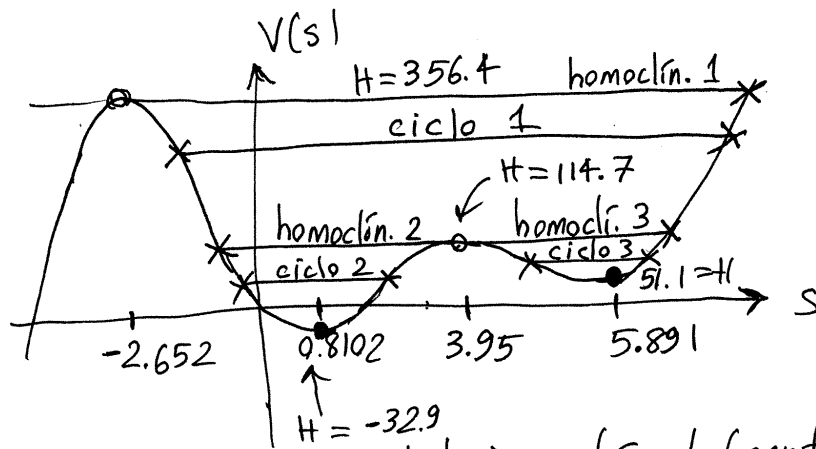 V(s)
H=356.4 homoclín. 1
ciclo 1
H=114.7
homoclín. 2 homoclí. 3
ciclo 2 ciclo 3
51.1=H
S
-2.652 0.8102 3.95 5.891
H = -32.9